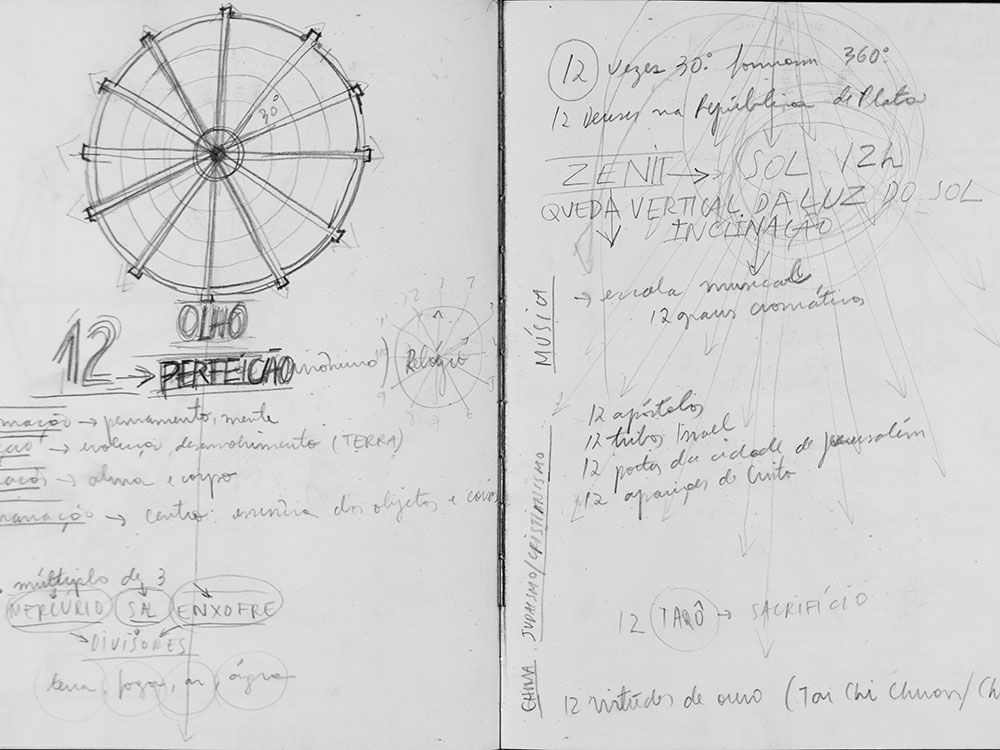 30°
OLHO
12 → PERFEIÇÃO
Relógio
→ pensamento, mente
→ evolução, desenvolvimento (TERRA)
→ alma e corpo
→ centro: essência dos objetos e
múltiplo de 3
MERCÚRIO SAL ENXOFRE
DIVISORES
terra, fogo, ar, água
12 vezes 30° formam 360°
12 Deuses na República de Platão
ZENIT → SOL 12h
QUEDA VERTICAL DA LUZ DO SOL
INCLINAÇÃO
MÚSICA
→ escala musical
12 graus cromáticos
JUDAISMO/CRISTIANISMO
12 apóstolos
12 tribos Israel
12 portas da cidade de Jerusalém
12 aparições de Cristo
12 TARÔ → SACRIFÍCIO
CHINA
12 virtudes de ouro (Tai Chi Chuan/